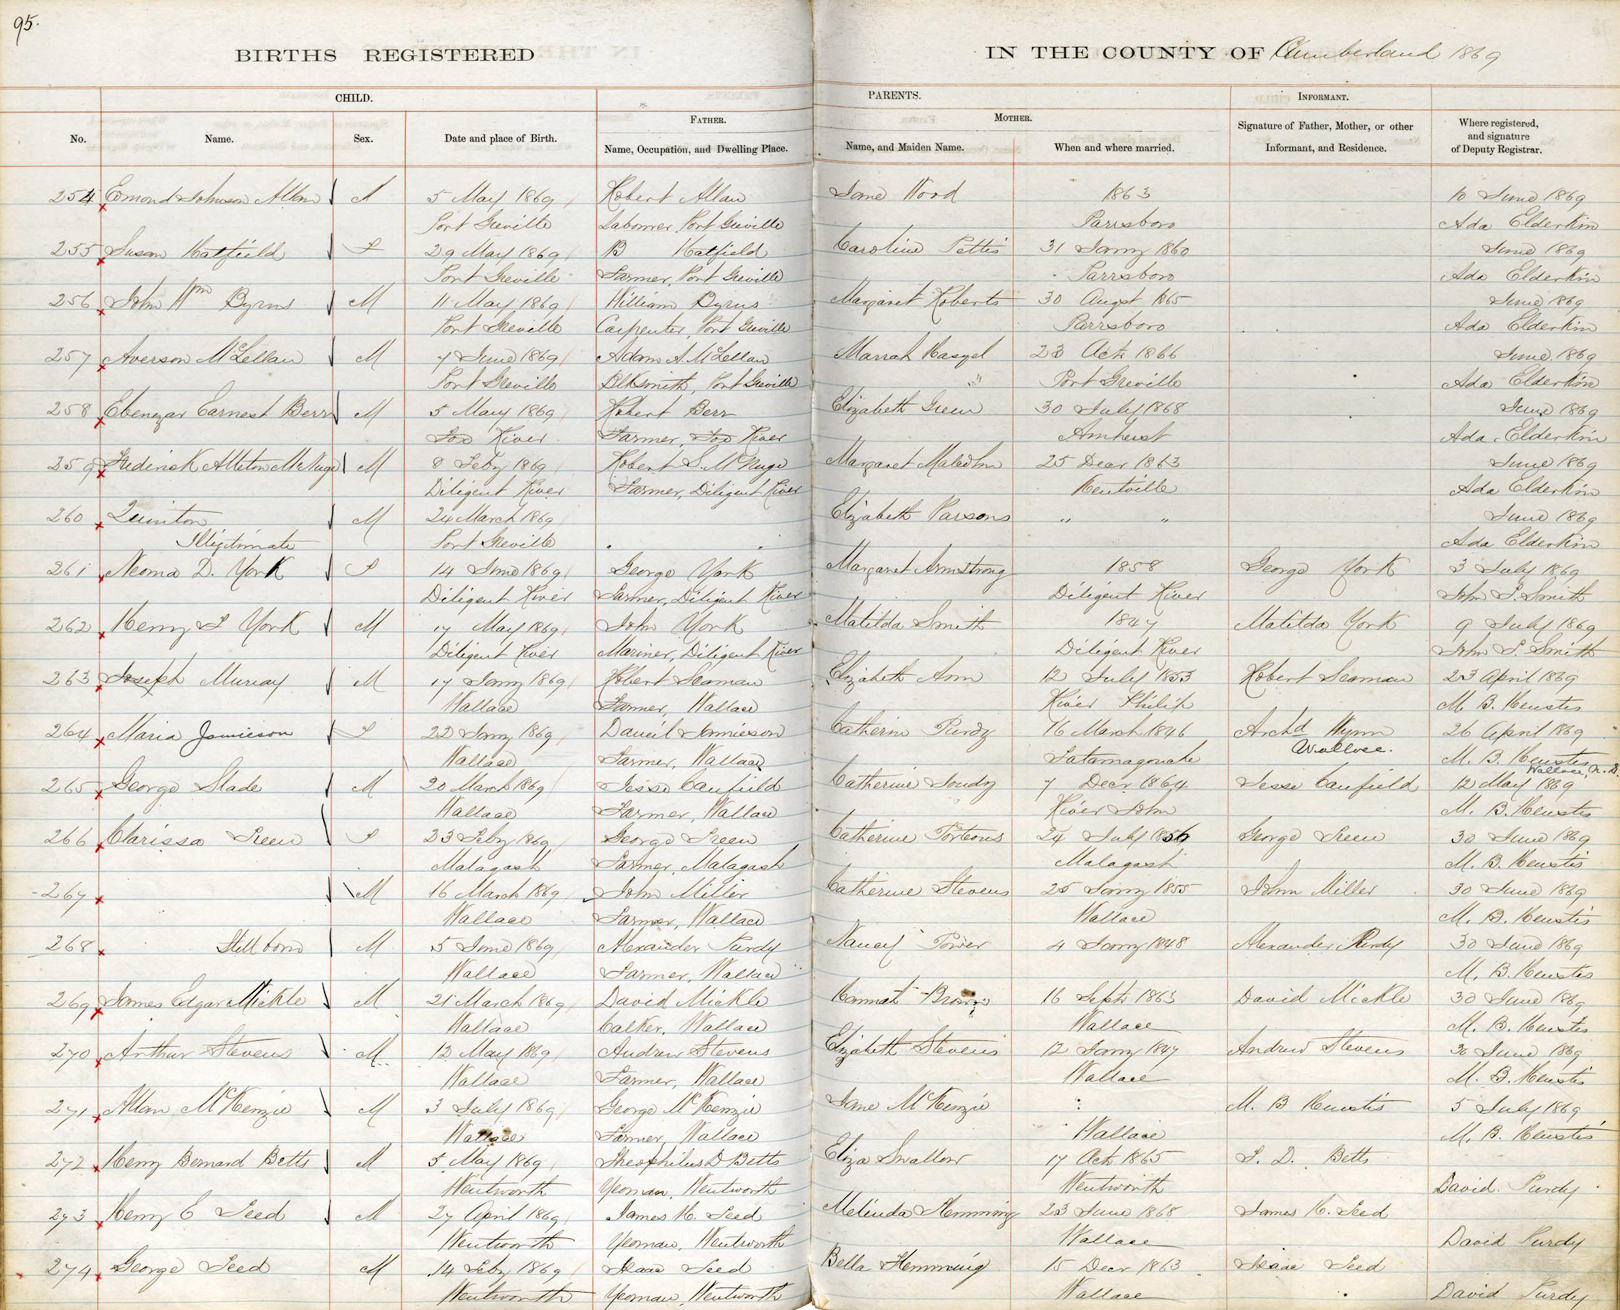 95.
BIRTHS REGISTERED IN THE COUNTY OF Cumberland 1869
CHILD. PARENTS. INFORMANT.
FATHER. MOTHER.
No. Name. Sex. Date and place of Birth. Name, Occupation, and Dwelling Place. Name, and Maiden Name. When and where married. Signature of Father, Mother, or other Informant, and Residence. Where registered, and signature of Deputy Registrar.
254 Emond Johnson Allan 5 May 1869 Robert Allan Jane Wood 1863 10 June 1869
Port Greville Labourer, Port Greville Parrsboro Ada Elderkin
255 Susan Hatfield F 29 May 1869 B Hatfield Caroline Pettis 31 Jany 1860 June 1869
Port Greville Farmer, Port Greville Parrsboro Ada Elderkin
256 John Wm Byrns M 11 May 1869 William Byrns Margaret Roberts 30 Augst 1865 June 1869
Port Greville Carpenter, Port Greville Parrsboro Ada Elderkin
257 Averson McLellan M 7 June 1869 Adam A. McLellan Marrah 23 Oct 1866 June 1869
Port Greville Blksmith, Port Greville " Port Greville Ada Elderkin
258 Ebenezar Earnest Berr M 5 May 1869 Robert Berr Elizabeth Green 30 July 1868 June 1869
Fox River Farmer, Fox River Amherst Ada Elderkin
259 Frederick Alleton McNuge M 8 Feby 1869 Robert S. McNuge Margaret Malcolm 25 Decr 1863 June 1869
Diligent River Farmer, Diligent River Kentville Ada Elderkin
260 Quinton M 24 March 1869 Elizabeth Parsons " " June 1869
Illigitimate Port Greville Ada Elderkin
261 Neoma D. York F 14 June 1869 George York Margaret Armstrong 1858 George York 3 July 1869
Diligent River Farmer, Diligent River Diligent River John S. Smith
262 Henry S York M 17 May 1869 John York Matilda Smith 1847 Matilda York 9 July 1869
Diligent River Mariner, Diligent River Diligent River John S. Smith
263 Joseph Murray M 17 Jany 1869 Robert Seaman Elizabeth Ann 12 July 1853 Robert Seaman 23 April 1869
Wallace Farmer, Wallace River Philip M. B. Heustis
264 Maria Jamieson F 22 Jany 1869 Daniel Jamieson Catherine Purdy 16 March 1846 Archd Wynn 26 April 1869
Wallace Farmer, Wallace Tatamagouche Wallace. M. B. Heustis
Wallace, N.S.
265 George Slade M 20 March 1869 Jesse Canfield Catherine Joudry 7 Decr 1864 Jesse Canfield 12 May 1869
Wallace Farmer, Wallace River John M. B. Heustis
266 Clarissa Treen F 23 Feby 1869 George Treen Catherine Porteous 24 July 1856 George Treen 30 June 1869
Malagash Farmer, Malagash Malagash M. B. Heustis
267 M 16 March 1869 John Miller Catherine Stevens 25 Jany 1855 John Miller 30 June 1869
Wallace Farmer, Wallace Wallace M. B. Heustis
268 Still born M 5 June 1869 Alexander Purdy Nancy Power 4 Jany 1848 Alexander Purdy 30 June 1869
Wallace Farmer, Wallace M. B. Heustis
269 James Edgar Mickle M 21 March 1869 David Mickle Hannah Brown 16 Sept 1863 David Mickle 30 June 1869
Wallace Calker, Wallace Wallace M. B. Heustis
270 Arthur Stevens M 12 May 1869 Andrew Stevens Elizabeth Stevens 12 Jany 1847 Andrew Stevens 30 June 1869
Wallace Farmer, Wallace Wallace M. B. Heustis
271 Allan McKenzie M 3 July 1869 George McKenzie Jane McKenzie M. B Heustis 5 July 1869
Wallace Farmer, Wallace Wallace M. B. Heustis
272 Henry Bernard Betts M 5 May 1869 Theophilus D Betts Eliza Swallow 17 Oct 1865 T. D. Betts
Wentworth Yeoman, Wentworth Wentworth David Purdy
273 Henry C Teed M 27 April 1869 James H. Teed Melinda Hemming 23 June 1868 James H. Teed
Wentworth Yeoman, Wentworth Wallace David Purdy
274 George Teed M 14 Feby 1869 Isaac Teed Bella Hemming 15 Decr 1863 Isaac Teed
Wentworth Yeoman, Wentworth Wallace David Purdy